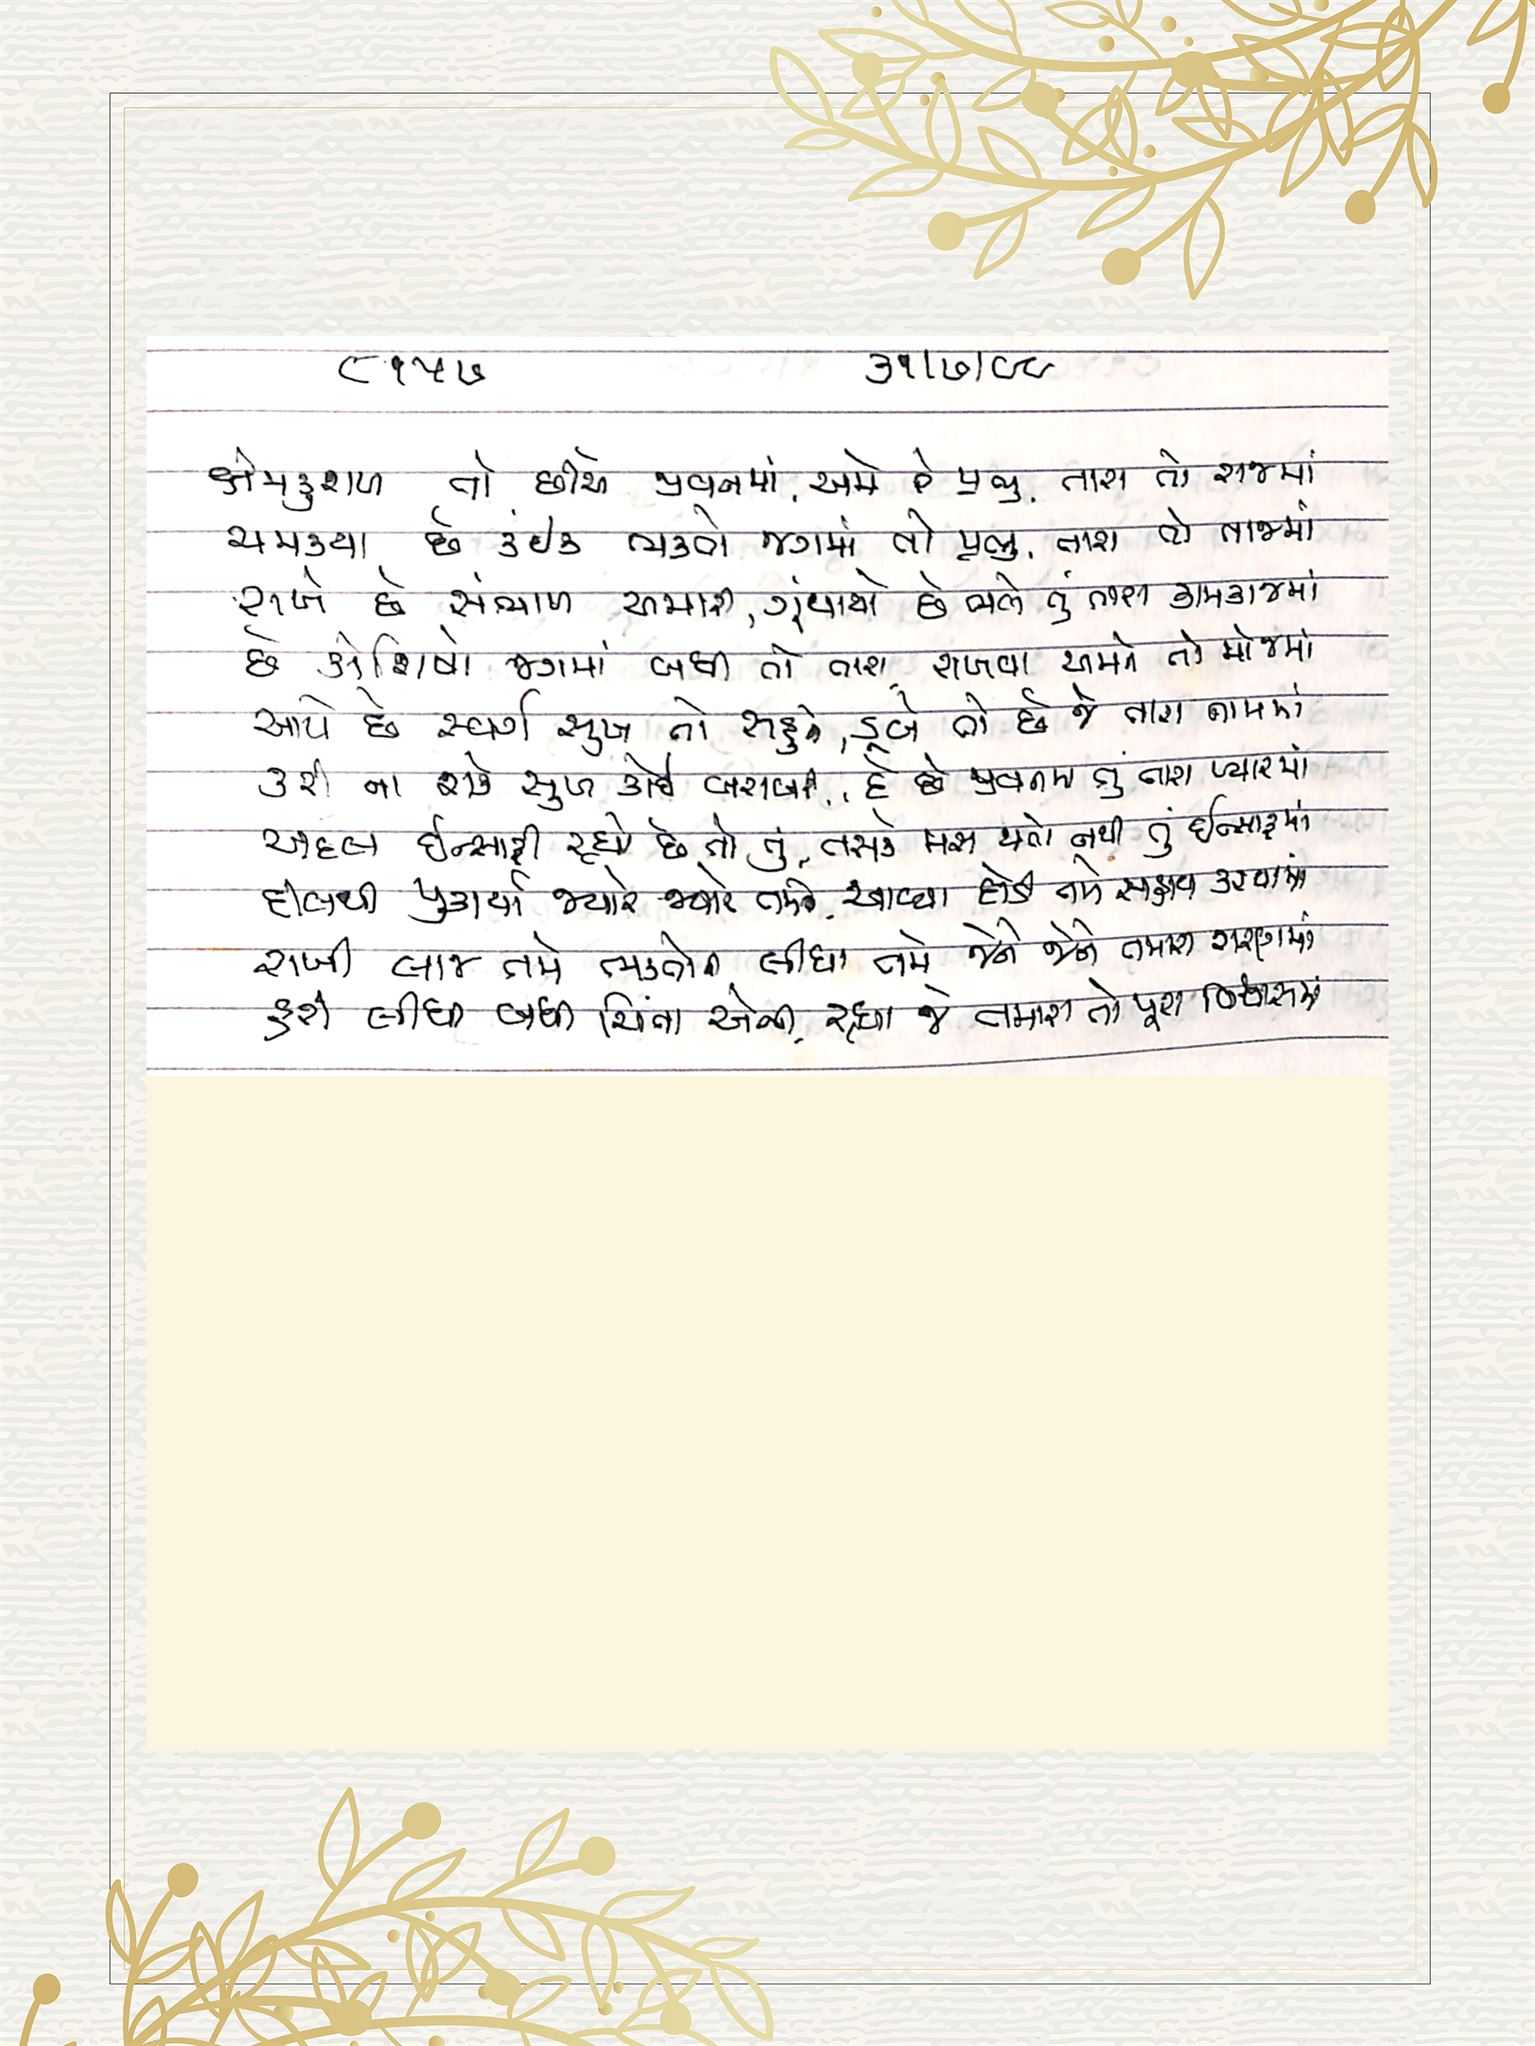 ૯૧૫૭ ૩૧/૭/૯૮
ક્ષેમકુશળ તો છીએ જીવનમાં, અમે હે પ્રભુ, તારા તો રાજમાં
ચમક્યા છે કંઈક ભક્તો જગમાં તો પ્રભુ, તારા તો તાજમાં
રાખે છે સંભાળ અમારી, ગૂંથાયો છે ભલે તું તારા કામકાજમાં
છે કોશિષો જગમાં બધી તો તારી, રાખવા અમને તો મોજમાં
આપે છે સ્વર્ગ સુખ તો સહુને, ડૂબે તો છે જે તારા નામમાં
કરી ના શકે સુખ કોઈ બરાબરી, દે છે જીવનમાં તું તારા પ્યારમાં
અદલ ઈન્સાફી રહ્યો છે તો તું, તસકે મસ થતો નથી તું ઈન્સાફમાં
દિલથી પુકાર્યા જ્યારે જ્યારે તમને, આવ્યા દોડી તમે સહાય કરવામાં
રાખી લાજ તમે ભક્તોની લીધા તમે જેને જેને તમારા શરણમાં
હરી લીધી બધી ચિંતા એની, રહ્યા જે તમારા તો પૂરા વિશ્વાસમાં